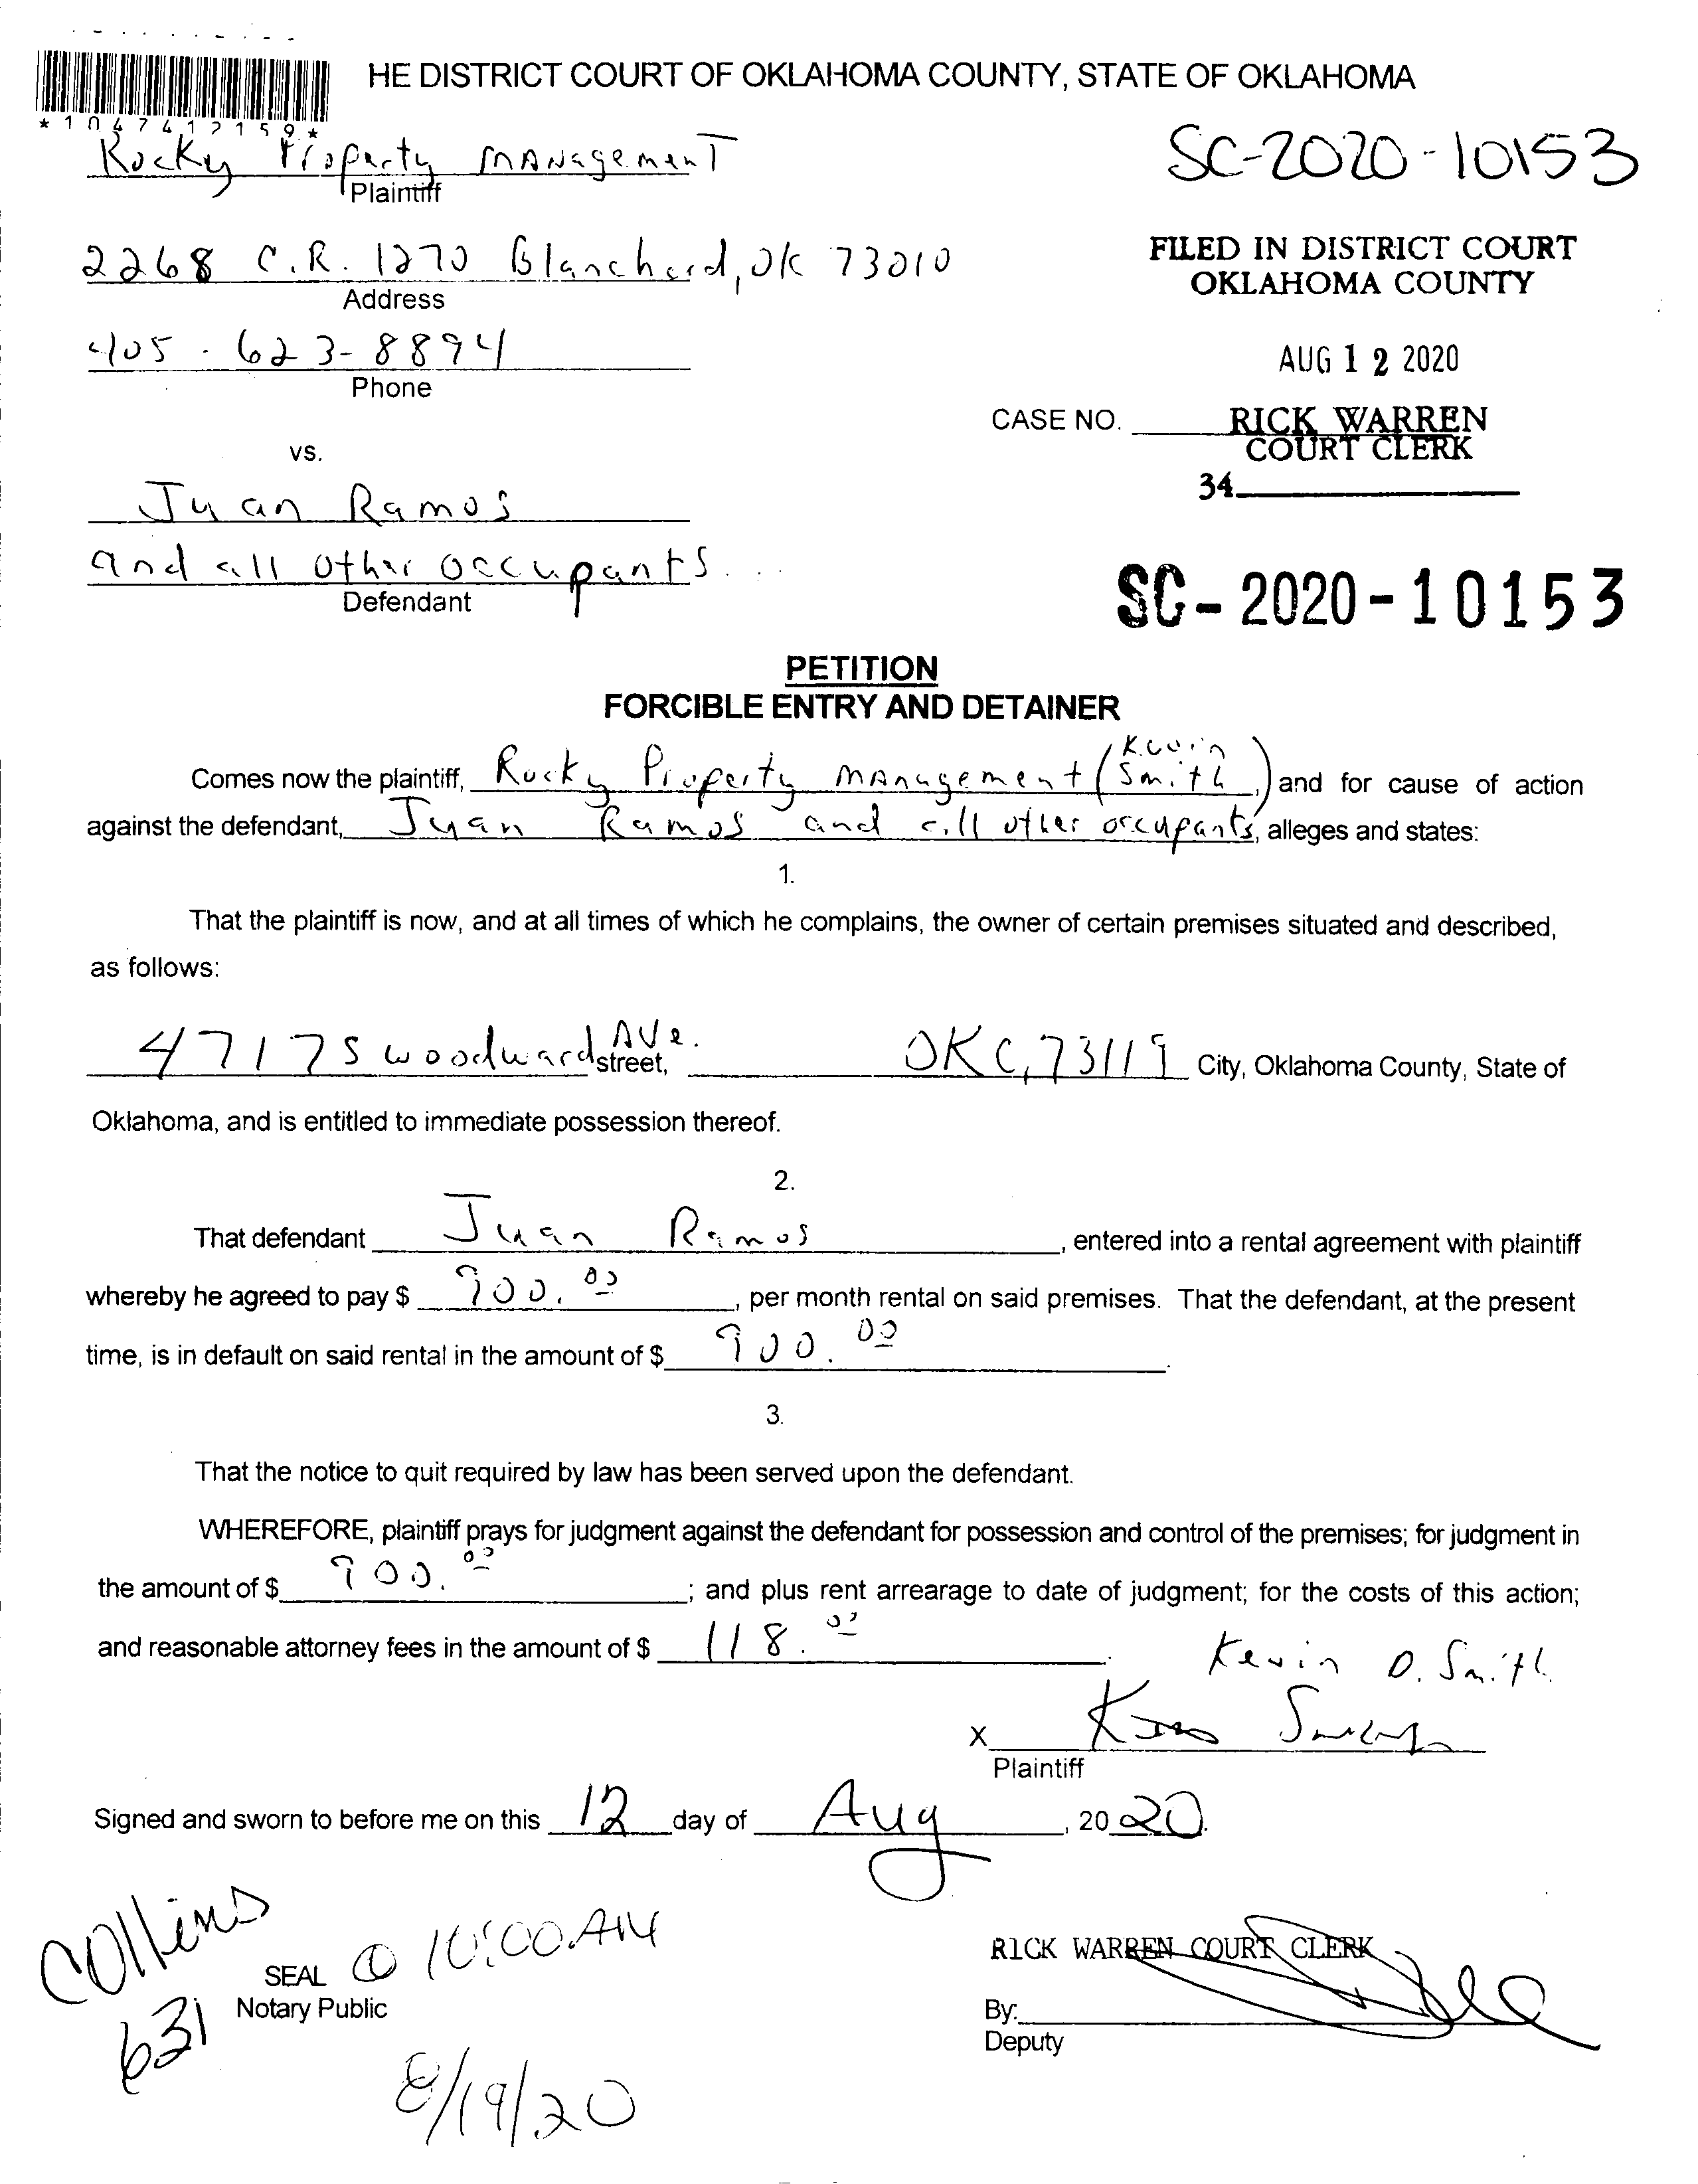 HE DISTRICT COURT OF OKLAHOMA COUNTY, STATE OF OKLAHOMA
*1047412159*
Rocky Property MANagemenT
Plaintiff
SC-2020-10153
2268 C.R. 1270 Blanchard, OK 73010
Address
FILED IN DISTRICT COURT
OKLAHOMA COUNTY
405-623-8894
Phone
AUG 12 2020
CASE NO.
RICK WARREN
COURT CLERK
34
vs.
Juan Ramos
and all other occupants
Defendant
SC-2020-10153
PETITION
FORCIBLE ENTRY AND DETAINER
Comes now the plaintiff, Rocky Property MAnagement (Kevin Smith), and for cause of action
against the defendant, Juan Ramos and all other occupants, alleges and states:
1.
That the plaintiff is now, and at all times of which he complains, the owner of certain premises situated and described,
as follows:
4717 S woodward AVe. street, OKC, 73119 City, Oklahoma County, State of
Oklahoma, and is entitled to immediate possession thereof.
2.
That defendant Juan Ramos, entered into a rental agreement with plaintiff
whereby he agreed to pay $ 900.00, per month rental on said premises. That the defendant, at the present
time, is in default on said rental in the amount of $ 900.00.
3.
That the notice to quit required by law has been served upon the defendant.
WHEREFORE, plaintiff prays for judgment against the defendant for possession and control of the premises; for judgment in
the amount of $ 900.00; and plus rent arrearage to date of judgment; for the costs of this action;
and reasonable attorney fees in the amount of $ 118.00.
Kevin D. Smith
X
Plaintiff
Signed and sworn to before me on this 12 day of Aug, 2020.
Collins
631
SEAL
Notary Public
@ 10:00 AM
8/19/20
RICK WARREN COURT CLERK
By:
Deputy